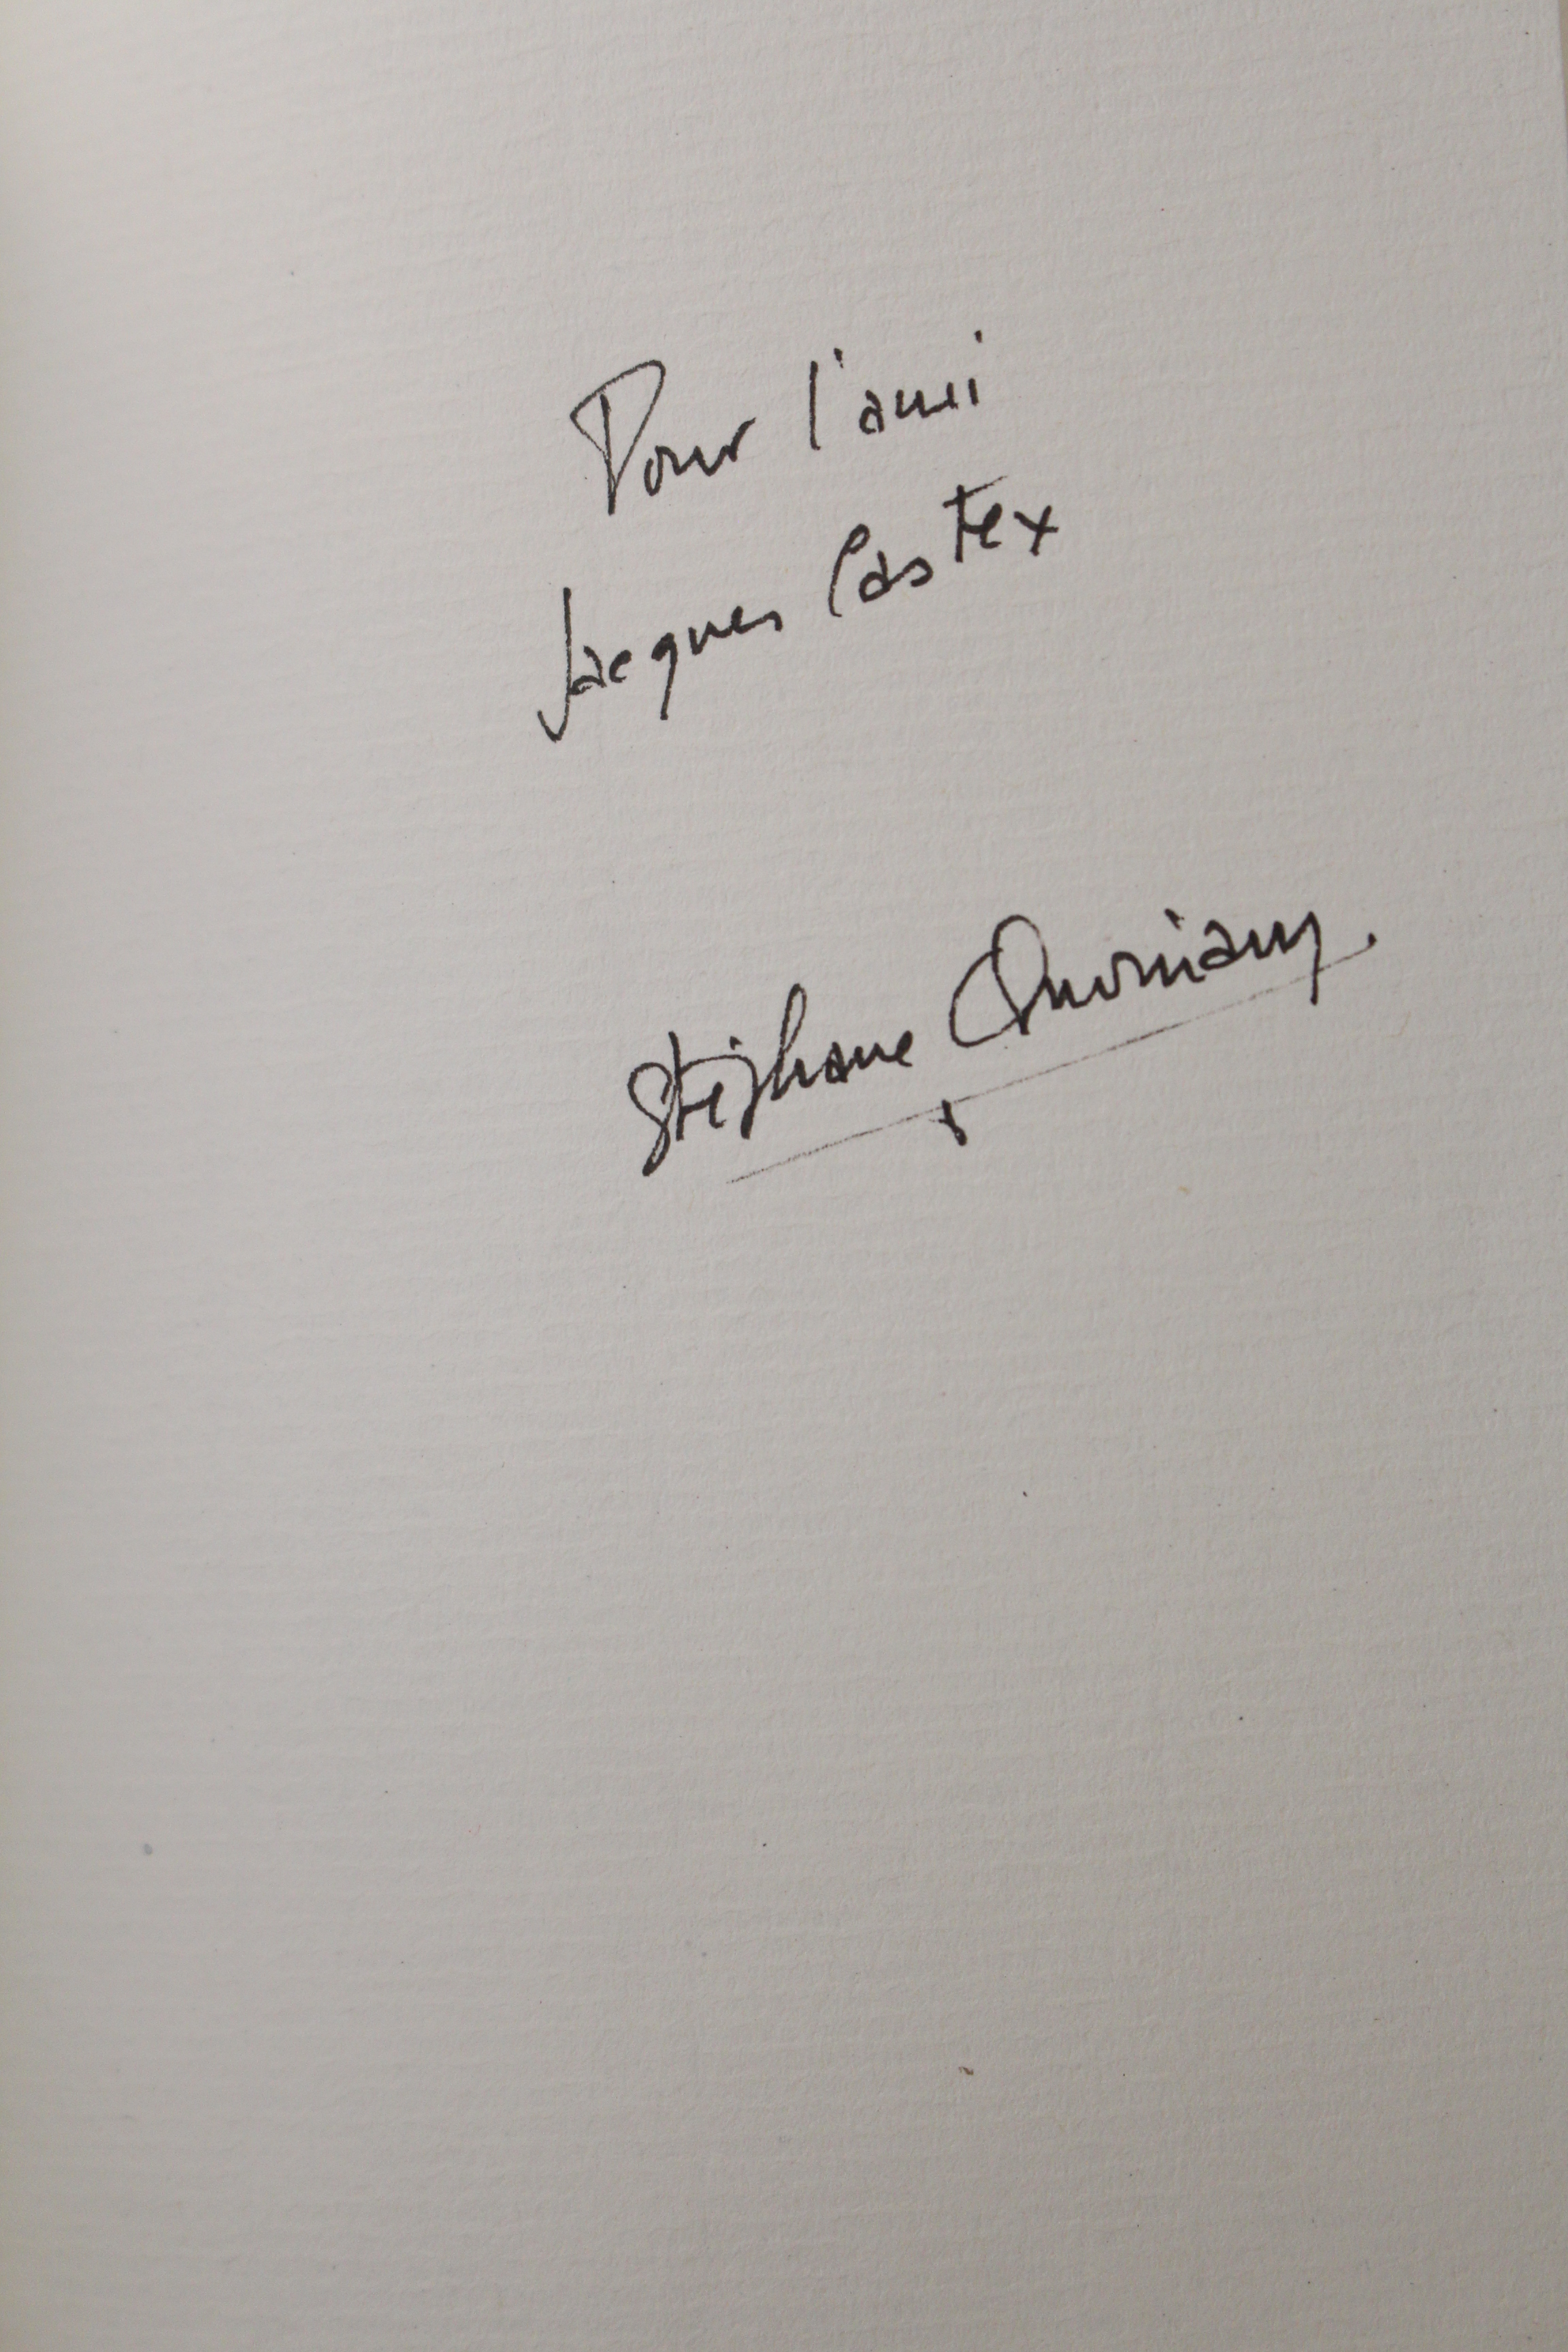 Pour l'ami
Jacques Castex
Stéphane Quoniam